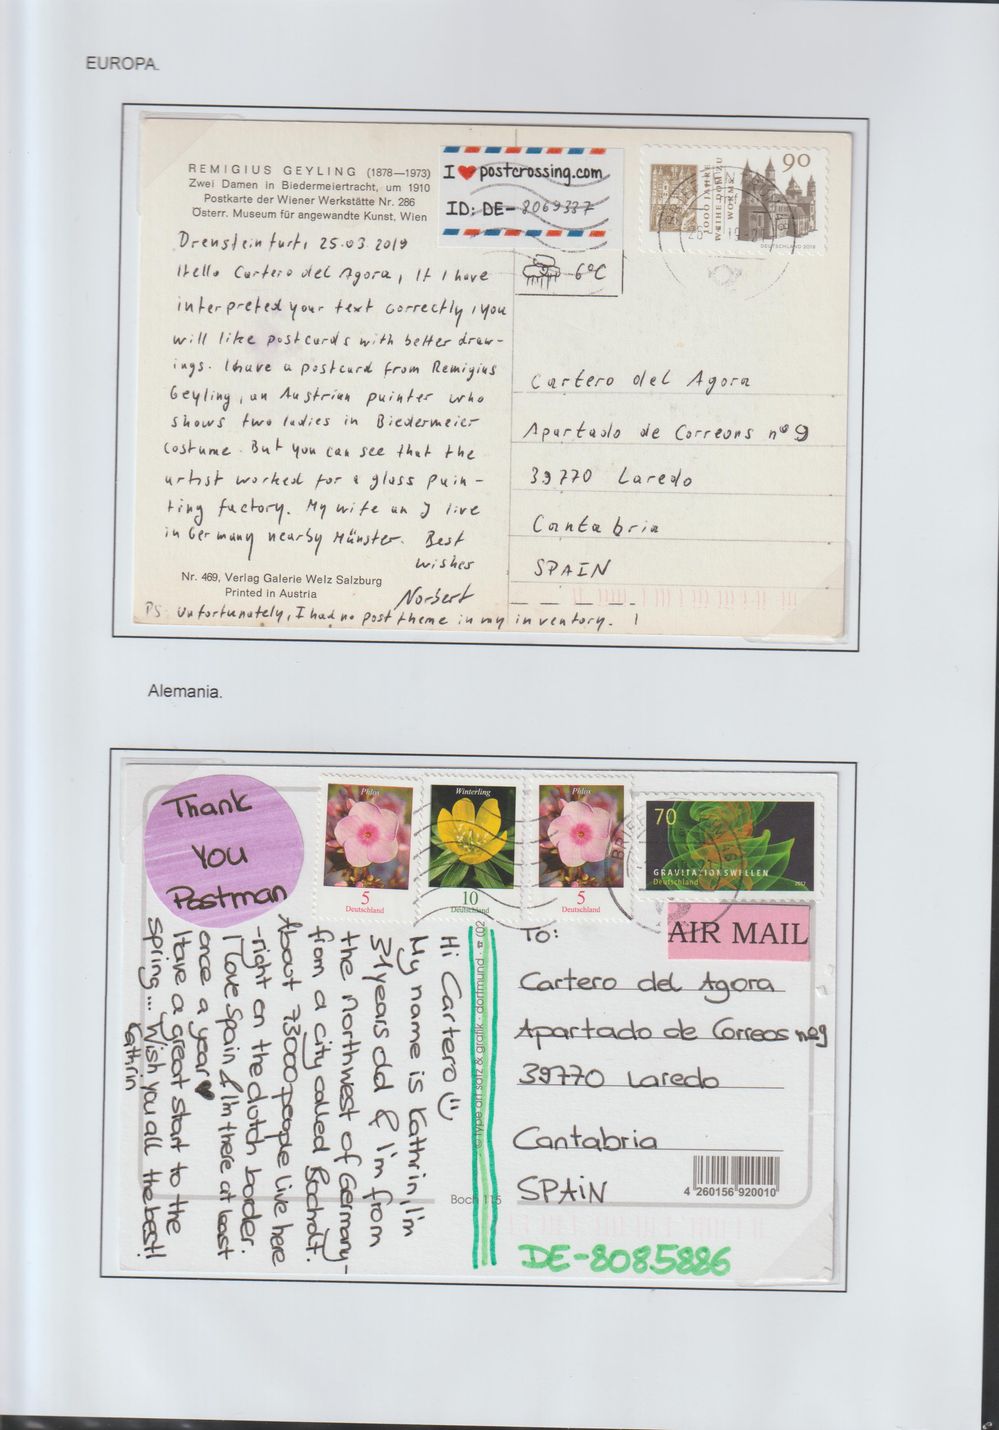 EUROPA.
REMIGIUS GEYLING (1878—1973)
Zwei Damen in Biedermeiertracht, um 1910
Postkarte der Wiener Werkstätte Nr. 286
Österr. Museum für angewandte Kunst, Wien
I ❤ postcrossing.com
ID: DE- 8069337
1000 JAHRE
WEIHE DOM ZU
WORMS
90
DEUTSCHLAND 2018
6°C
Drensteinfurt, 25.03.2019
Hello Cartero del Agora, If I have
interpreted your text correctly, you
will like postcards with better draw-
ings. I have a postcard from Remigius
Geyling, an Austrian painter who
shows two ladies in Biedermeier
costume. But you can see that the
artist worked for a glass pain-
ting factory. My wife an I live
in Germany nearby Münster. Best
wishes
Norbert
Nr. 469, Verlag Galerie Welz Salzburg
Printed in Austria
PS: Unfortunately, I had no post theme in my inventory. !
Cartero del Agora
Apartado de Correons nº 9
39770 Laredo
Cantabria
SPAIN
Alemania.
Thank
You
Postman
Phlox
5
Deutschland
Winterling
10
Deutschland
Phlox
5
Deutschland
70
GRAVITATIONSWELLEN
Deutschland
2017
AIR MAIL
Hi Cartero ☺
My name is Kathrin, I'm
31 years old & I'm from
the northwest of Germany-
from a city called Bocholt.
About 73000 people live here
-right on the dutch border.
I love Spain & I'm there at least
once a year ♥
Have a great start to the
spring... Wish you all the best!
Kathrin
© type art satz & grafik · dortmund · ☎ (02
Boch 115
To:
Cartero del Agora
Apartado de Correos nº9
39770 Laredo
Cantabria
SPAiN
4 260156 920010
DE-8085886